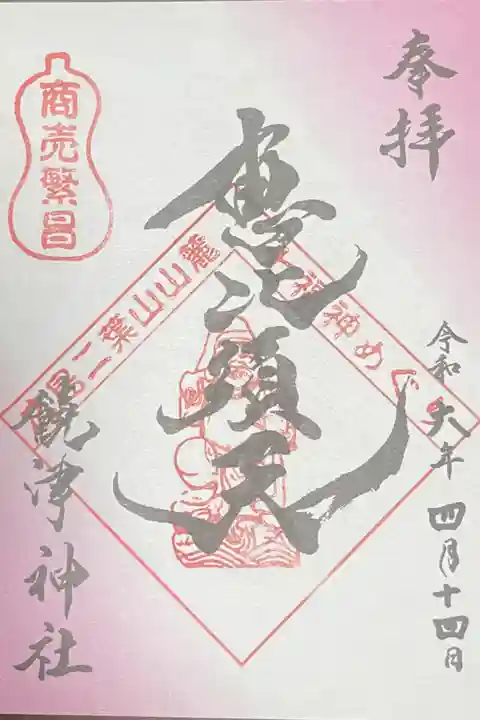 奉拝
令和六年四月十四日
恵比須天
商売繁昌
二葉山山麓
福神めぐ
饒津神社